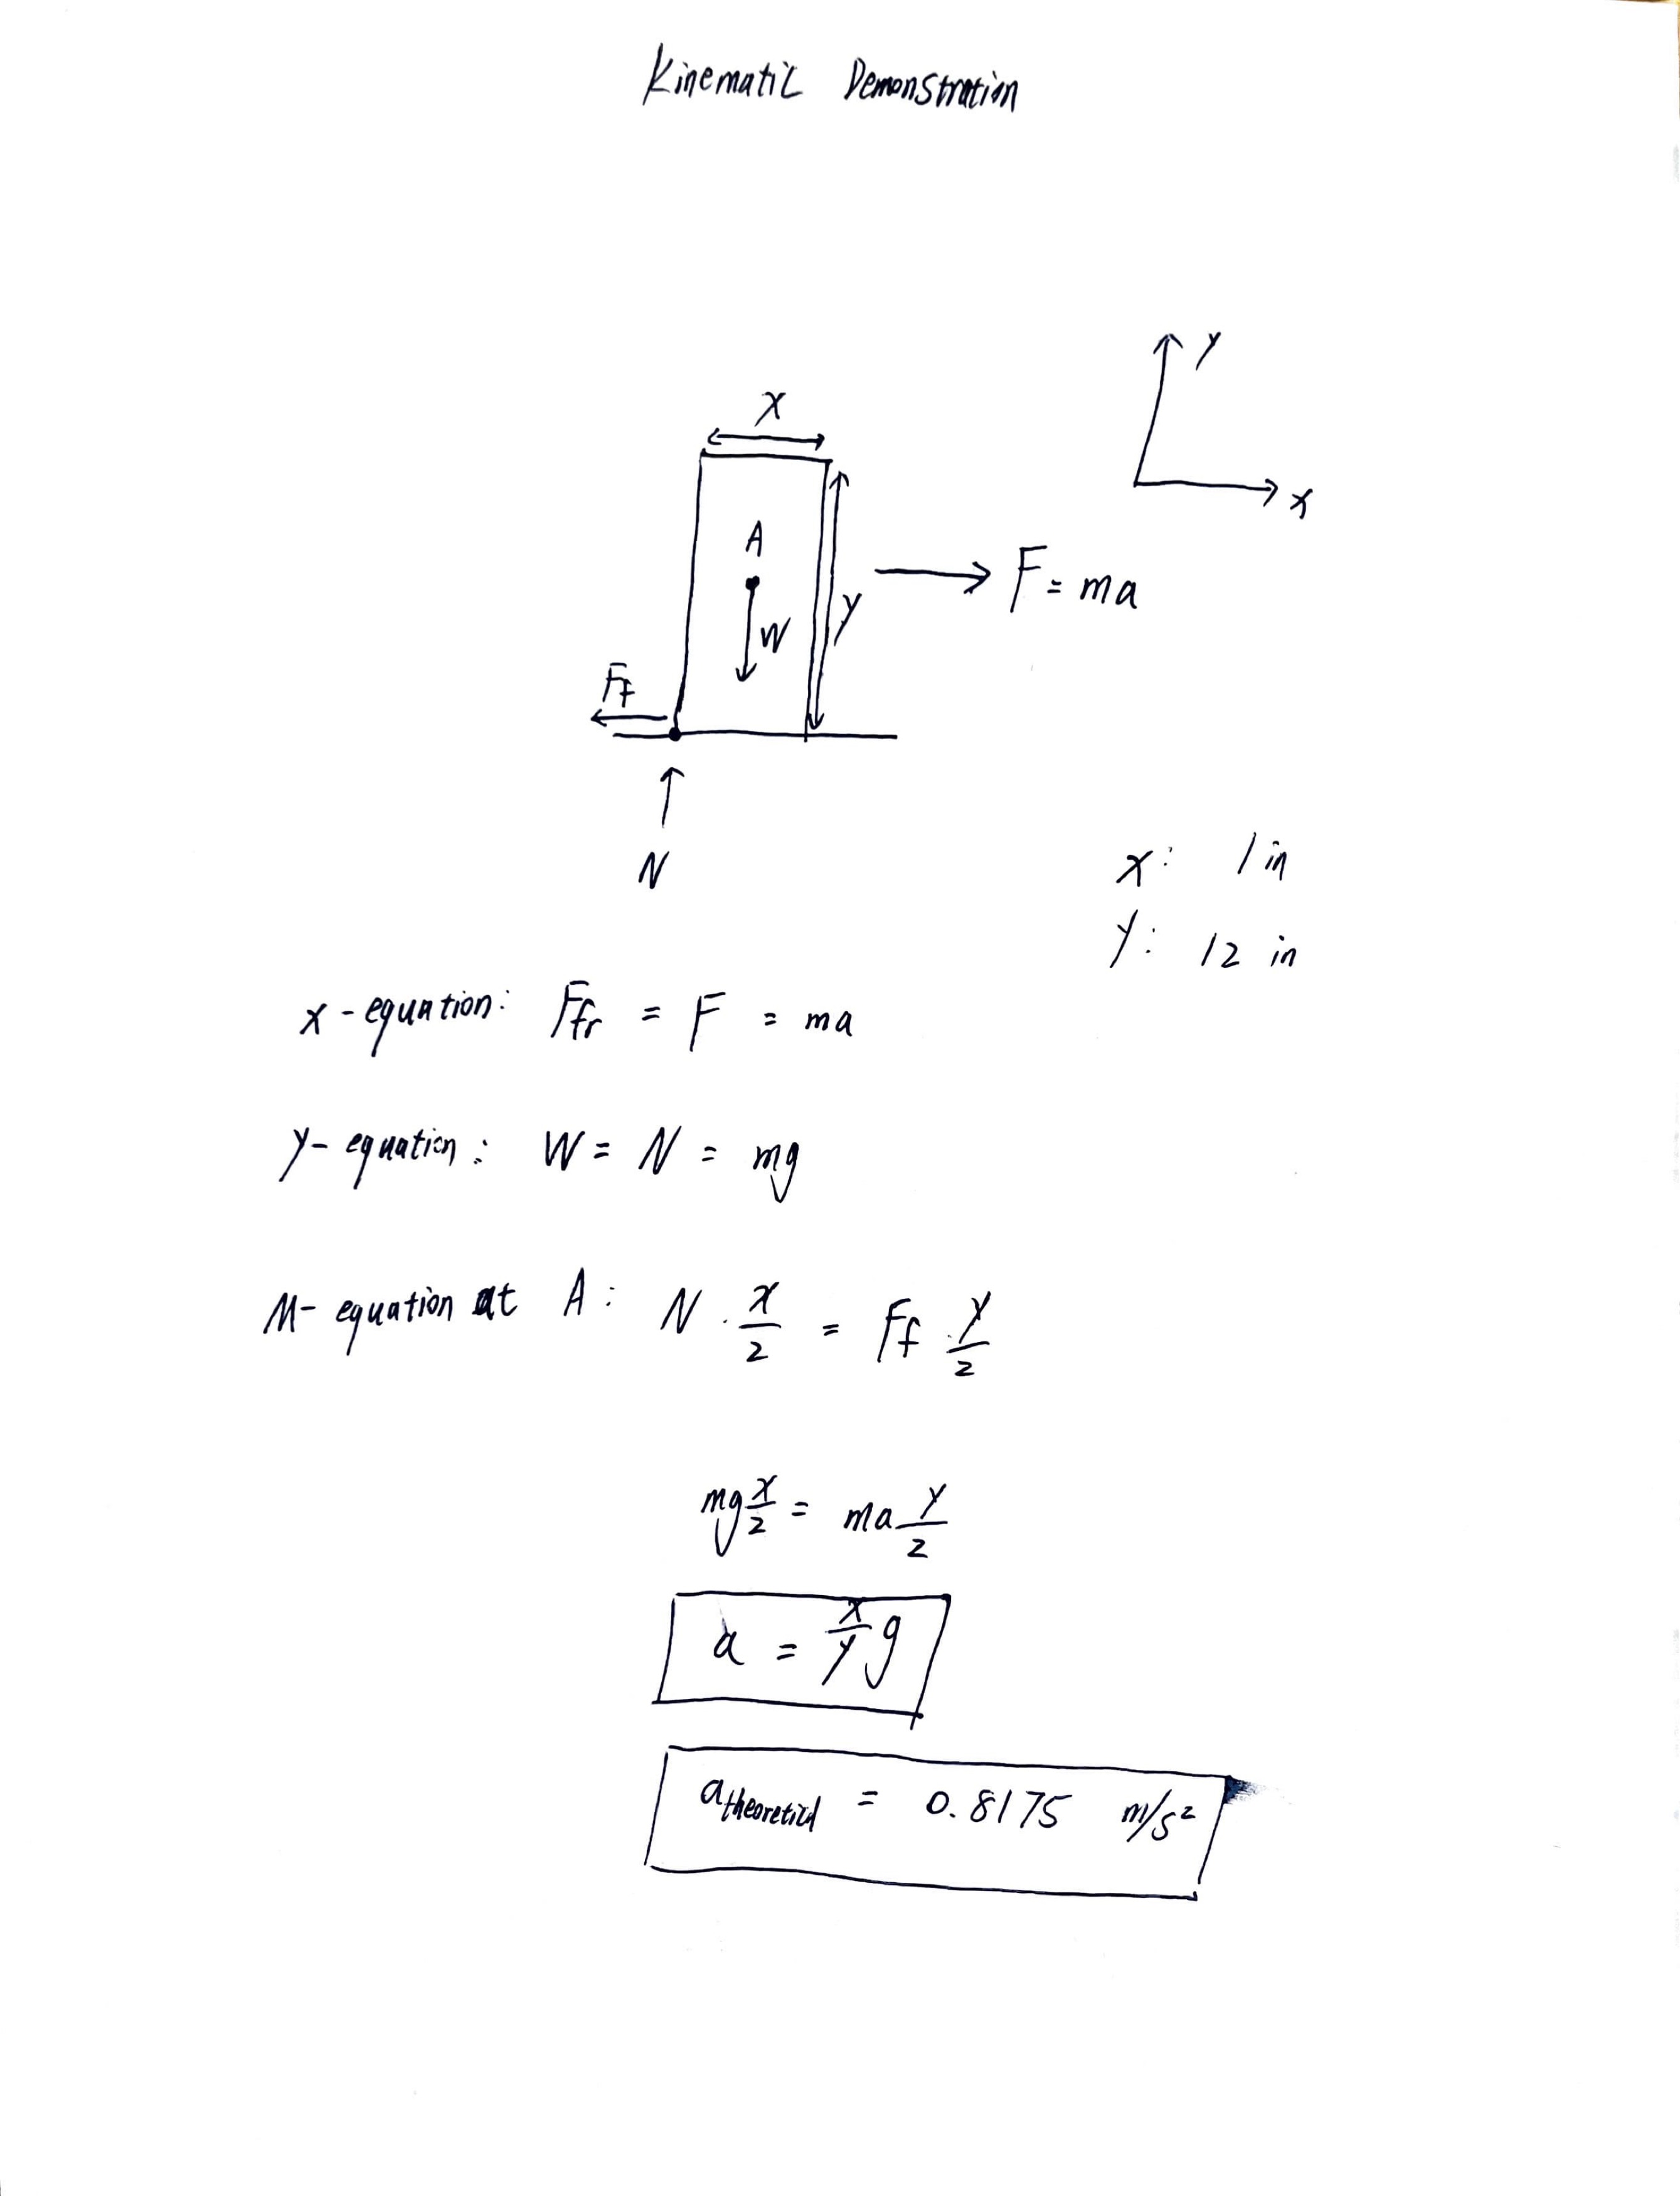 Kinematic Demonstration
y
x
x
A
F = ma
y
W
Ff
N
x: 1 in
y: 12 in
x-equation: Ffr = F = ma
y-equation: W = N = mg
M-equation at A: N · x/2 = Ff · y/2
mg x/2 = ma y/2
a = x/y g
a theoretical = 0.8175 m/s²